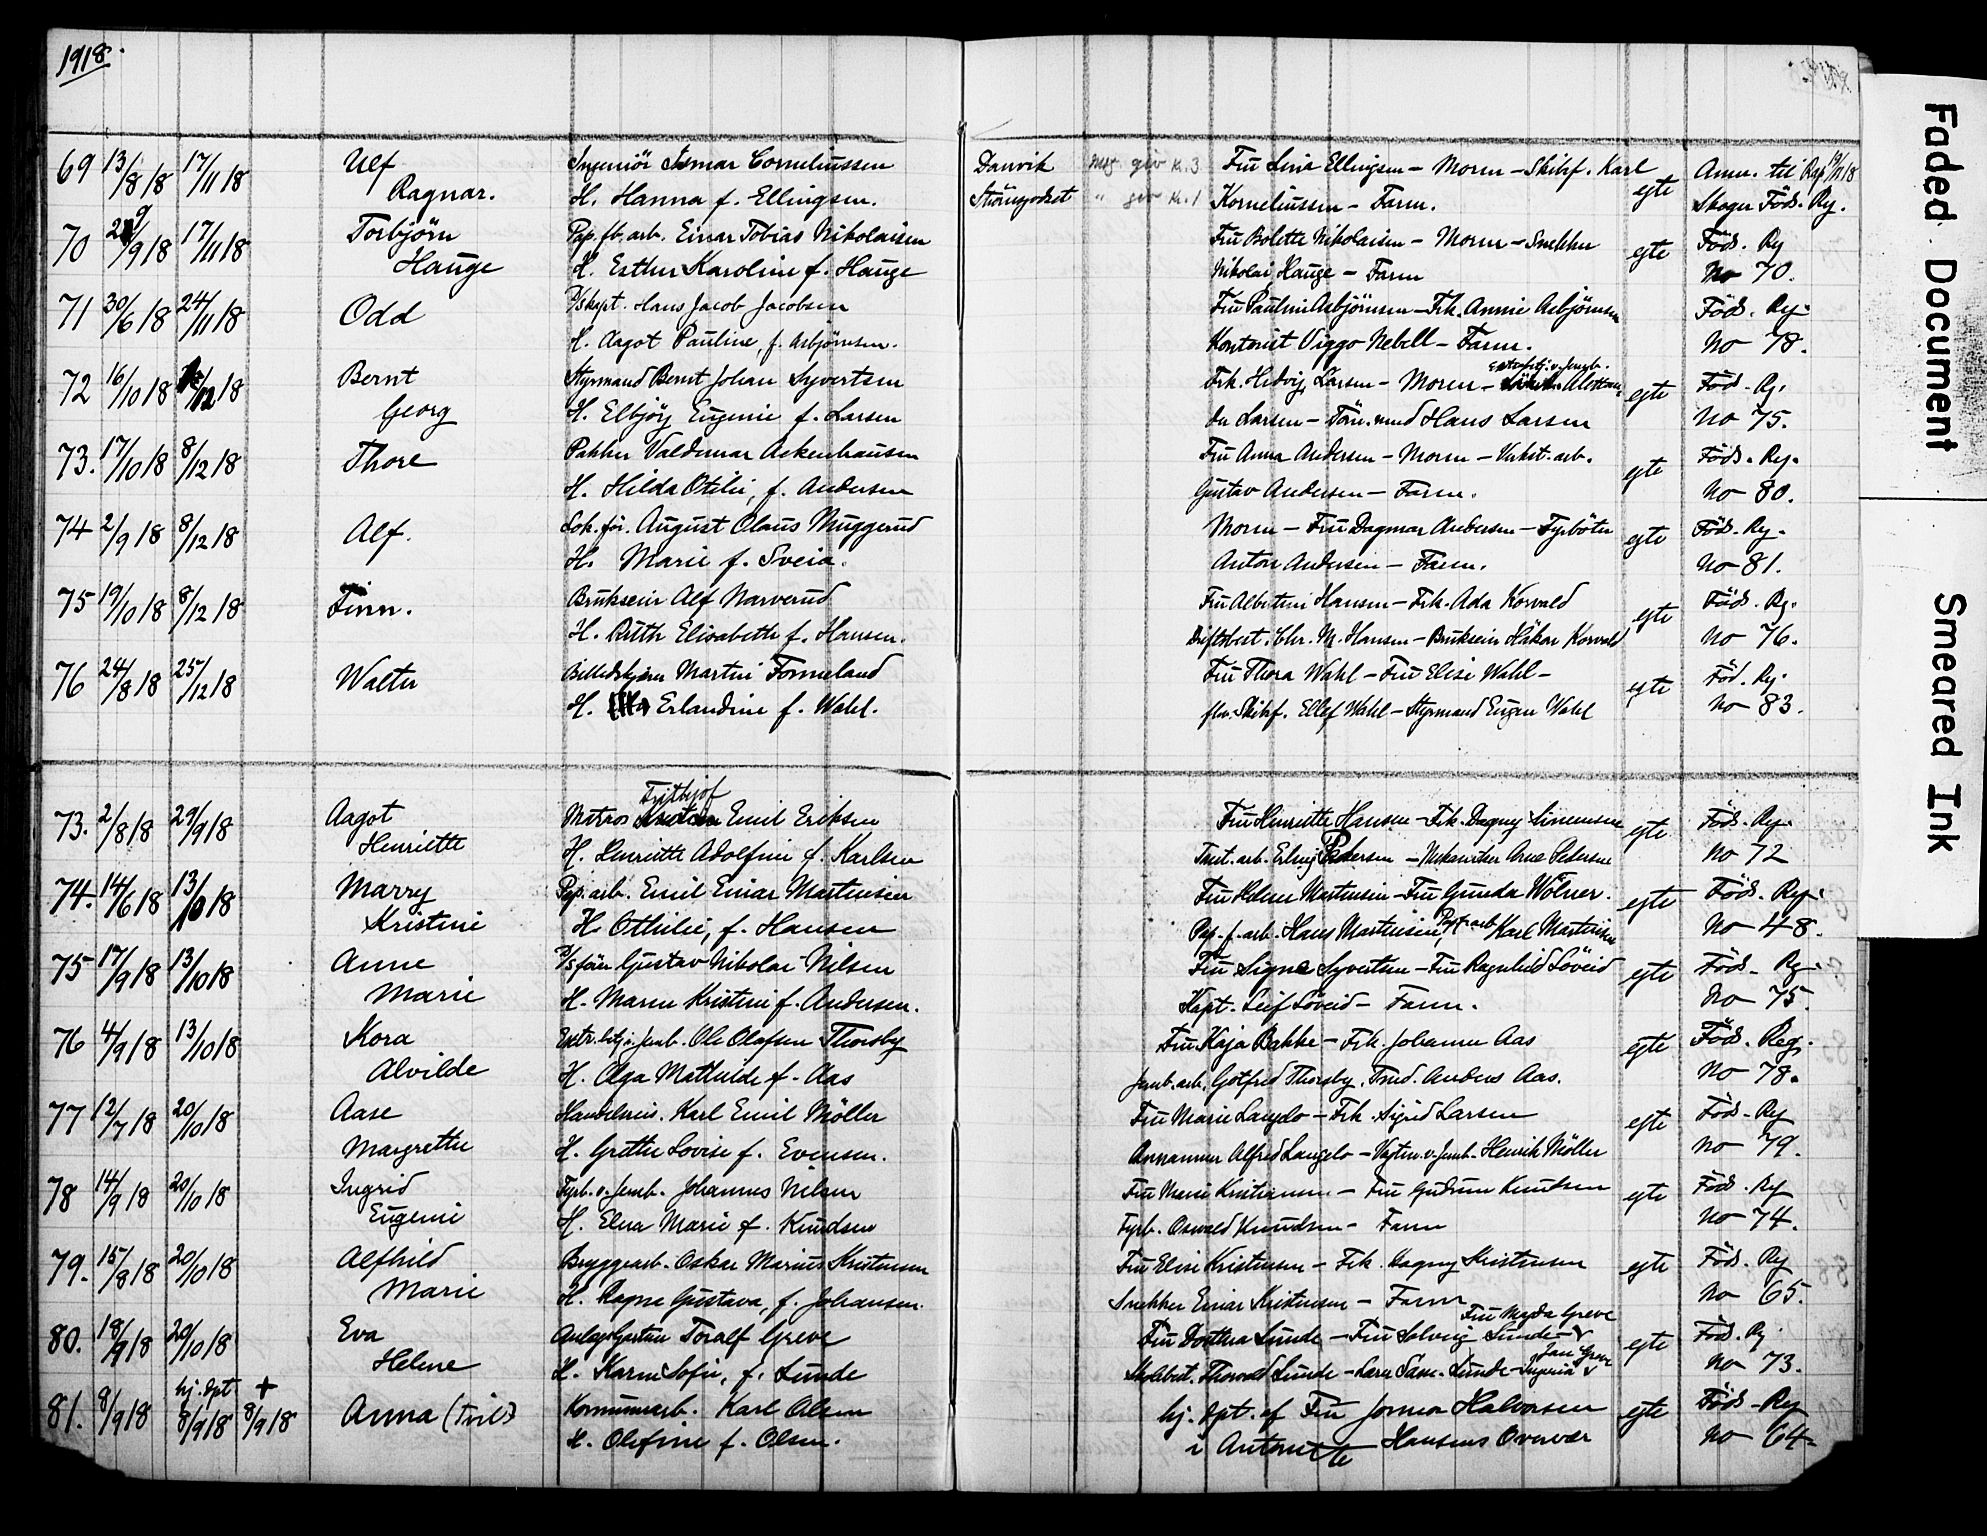 1918.
69 13/8 18 17/11 18 Ulf Ingeniør Ismar Corneliussen Danvik giv kr. 3 Fru Lina Ellingsen — Moren — Skibsf. Karl egte Anm. til Rep. 19/11 18
Ragnar. H. Hanna f. Ellingsen. Strömgodset " giv kr. 1 Korneliussen — Faren. Skoger Föds. Rg.
70 /9 18 17/11 18 Torbjörn Pap. fb. arb. Einar Tobias Nikolaisen Fru Bolette Nikolaisen — Moren — Snekker egte Föds. Rg
Hauge H. Esther Karoline f. Hauge Nikolai Hauge — Faren No 70.
71 30/6 18 24/11 18 Odd D/skapt. Hans Jacob Jacobsen Fru Pauline Asbjörnsen — Frk. Annie Asbjörnsen Föds. Rg.
H. Aagot Pauline, f. Asbjörnsen. Kontorist Viggo Nebell — Faren. No 78.
72 16/10 18 /12 18 Bernt Styrmand Bernt Johan Syvertsen Frk. Hedvig Larsen — Moren — egte Föds. Rg.
Georg H. Elbjörg Eugenie f. Larsen Larsen — Hans Larsen No 75.
73. 17/10 18 8/12 18 Thore Pakker Valdemar Askenhausen Fru Anna Andersen — Moren — Verkst. arb. egte Föds. Rg.
H. Hilda Otilie, f. Andersen Gustav Andersen — Faren. No 80.
74 2/9 18 8/12 18 Alf. Lok. för. August Olaus Muggerud Moren — Fru Dagmar Andersen — Fyrböter egte Föds. Rg.
H. Marie f. Sveia. Anton Andersen — Faren. No 81.
75 19/10 18 8/12 18 Finn. Brukseier Alf Narverud Fru Albertine Hansen — Frk. Ada Korvald egte Föds. Rg.
H. Ruth Elisabeth f. Hansen. Driftsbest. Chr. M. Hansen — Brukseier Håkon Korvald No 76.
76 24/8 18 25/12 18 Walter Billedskjærer Martin Fonneland Fru Thora Wahl — Fru Elise Wahl — egte Föd. Rg.
H. Erlandine f. Wahl. fhv. Skibsf. Ellef Wahl — Styrmand Eugen Wahl No 83.
Fritbjof
73. 2/8 18 29/9 18 Aagot Matros Emil Eriksen Fru Henriette Hansen — Frk. Dagny Simensen egte Föds. Rg.
Henriette H. Henriette Adolfine f. Karlsen Tomt. arb. Erling Pedersen — Mekaniker Arne Pedersen No 72
74. 14/6 18 13/10 18 Marry Pap. arb. Emil Einar Martinsen Fru Helene Martinsen — Fru Gunda Wölner. egte Föds. Rg.
Kristine H. Othilie, f. Hansen Pap. f. arb. Hans Martinsen, Pap. arb. Karl Martinsen No 48.
75 17/9 18 13/10 18 Anne D/sförer Gustav Nikolai Nilsen Fru Signe Syvertsen — Fru Ragnhild Löveid egte Föds. Rg.
Marie H. Maren Kristine f. Andersen. Kapt. Leif Löveid — Faren. No 75.
76 4/9 18 13/10 18 Kora Extr. btj. v. Jenb. Ole Olafsen Thorsby Fru Kaja Bakke — Frk. Johanne Aas egte Föds. Reg.
Alvilde H. Olga Mathilde f. Aas Jernb. arb. Gotfred Thorsby. Tmd. Anders Aas. No 78.
77 12/7 18 20/10 18 Aase Handelsreis. Karl Emil Möller Fru Marie Langelo — Frk. Sigrid Larsen egte Föds. Rg
Margrethe H. Grethe Lovise f. Evensen. Alfred Langelo — Vogtm. v. Jernb. Henrik Möller No 79.
78 14/9 18 20/10 18 Ingrid Fyrb. v. Jernb. Johannes Nilsen Fru Marie Kristiansen — Fru Gudrun Knudsen egte Föds. Rg
Eugenie H. Elna Marie f. Knudsen Fyrb. Oswald Knudsen — Faren No 74.
79. 15/8 18 20/10 18 Alfhild Bryggearb. Oskar Marius Kristensen Fru Elise Kristensen — Frk. Dagny Kristensen egte Föds. Rg
Marie H. Ragna Gustava, f. Johansen. Snekker Einar Kristensen — Faren No 65.
Fru Magda Greve
80. 18/9 18 20/10 18 Eva Anlægsgartner Toralf Greve Fru Dorthea Lunde — Fru Solveig Lunde — egte Föd. Rg.
Helene H. Karen Sofie, f. Lunde Skolebest. Thorvald Lunde — Lærer Sam. Lunde — Ingeniör Jan Greve No 73.
hj. dpt +
81. 8/9 18 8/9 18 8/9 18 Anna (tvill) Kommunearb. Karl Olsen hj. dpt. af Fru Jonna Halvorsen egte Föds. Rg
H. Olefine f. Olsen. i Antonette Hansens Overvær No 64.
Faded Document
Smeared Ink